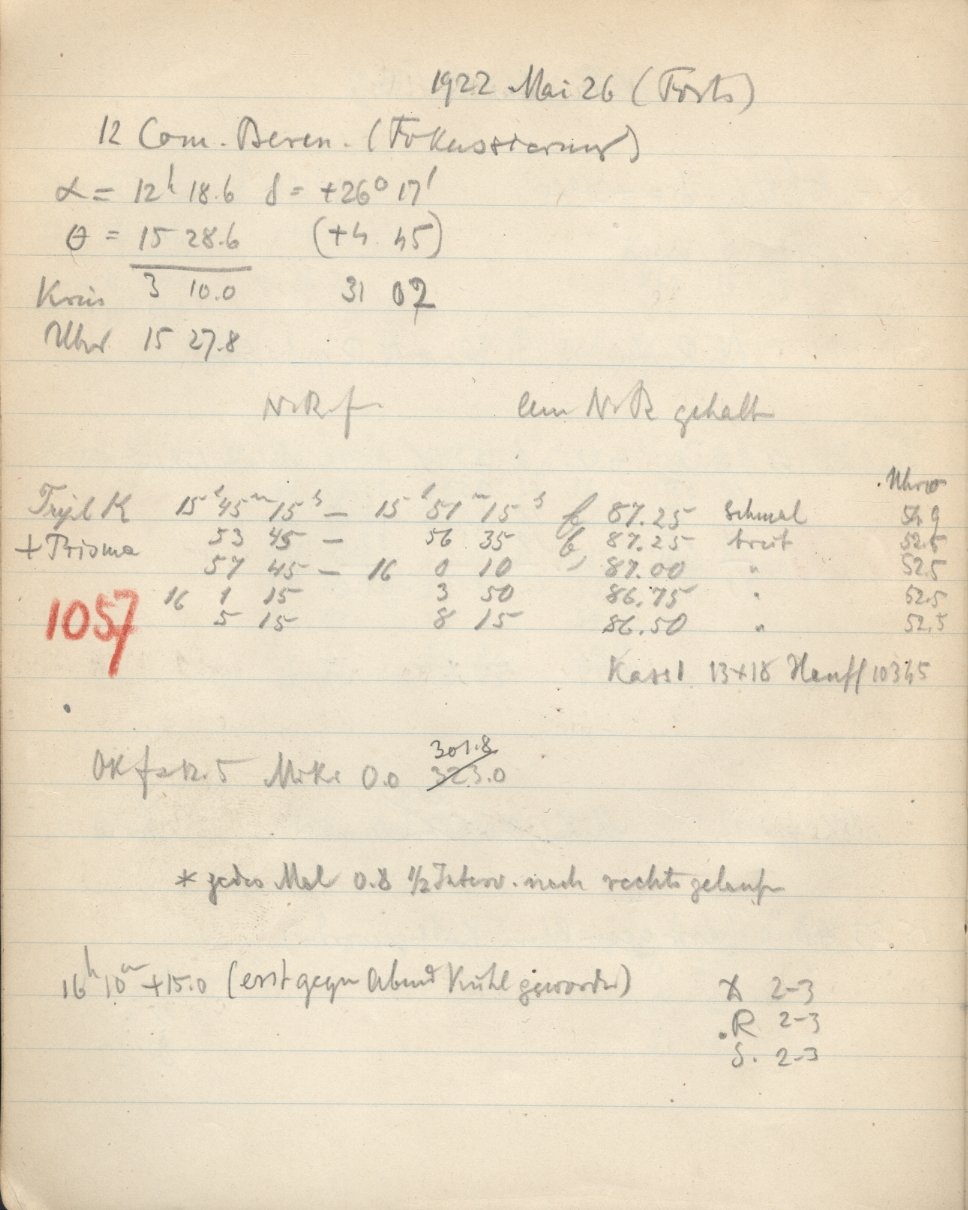 1922 Mai 26 (Forts)
12 Com. Beren. (Fokussierung)
α = 12h 18.6 δ = +26° 17'
θ = 15 28.6 (+4 45)
Kreis 3 10.0 31 02
Uhr 15 27.8
gehalt
Uhrw
Tripl K 15h 45m 15s — 15h 51m 15s f 87.25 schmal
+ Prisma 53 45 — 56 35 f 87.25 breit 52.5
57 45 — 16 0 10 87.00 " 52.5
16 1 15 3 50 86.75 " 52.5
5 15 8 15 86.50 " 52.5
1057
Kass I 13×18 Hauff 10345
301.8
Mikr 0.0 323.0
* jedes Mal 0.8 ½ Interv. nach rechts gelauf
16h 10m +15.0 (erst gegen Abend kühl geworden)
2-3
R 2-3
S. 2-3